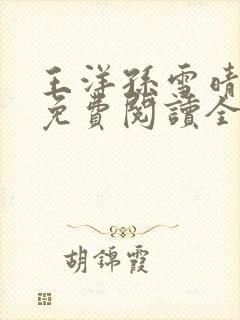 王洋孫雪晴
免費閱讀全
胡錦霞